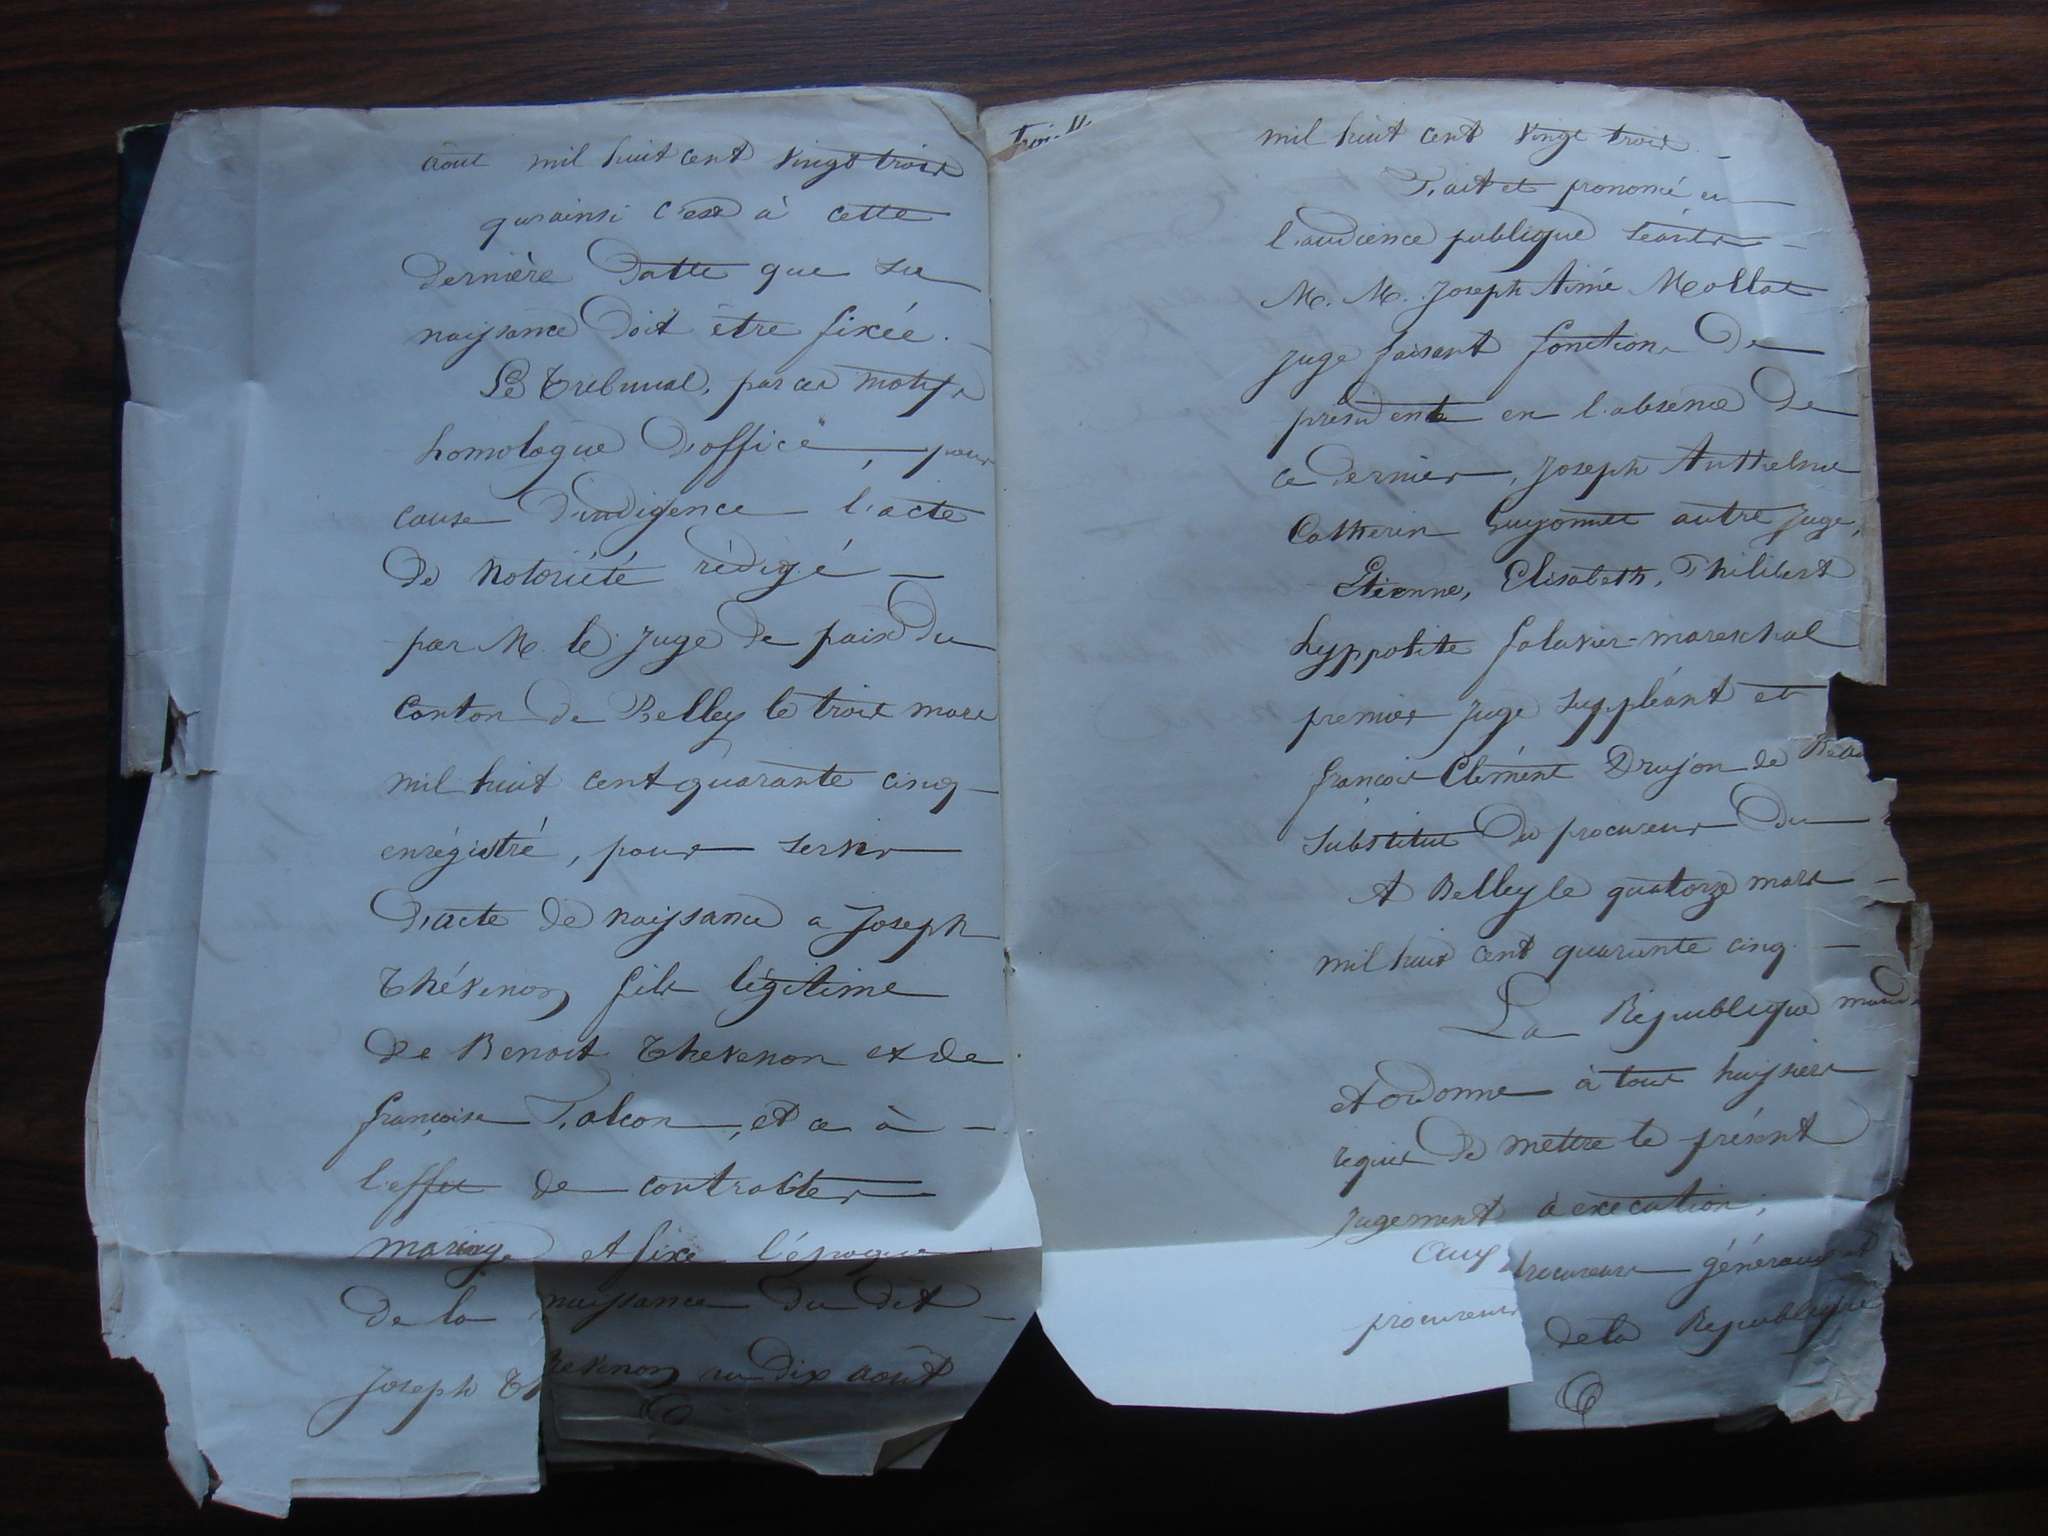 août mil huit cent vingt trois
qu'ainsi c'est à cette
dernière datte que sa
naissance doit être fixée.
Le Tribunal, par ces motifs
homologue d'office, pour
cause d'indigence l'acte
de notoriété rédigé
par M. le juge de paix du
Canton de Belley le trois mars
mil huit cent quarante cinq
enrégistré, pour servir
d'acte de naissance a Joseph
Thévenon fils légitime
de Benoit Thevenon et de
françoise Falcon, et ce à
l'effet de contracter
mariage et fixe l'époque
de la naissance du dit
Joseph Thevenon au dix août
trois
mil huit cent vingt trois
Fait et prononcé en
l'audience publique séants
M. M. Joseph Aimé Mollat
juge faisant fonctions de
président en l'absence de
ce dernier, Joseph Anthelme
Catherin Guyonnet autre juge,
Etienne, Elisabeth, Philibert
hyppolite falavier-mareschal
premier juge suppléant et
françois Clément Drujon de
Substitut du procureur du
A Belley le quatorze mars
mil huit cent quarante cinq.
La République mande
et ordonne à tous huissiers
requis de mettre le présent
jugement à exécution;
aux procureurs généraux et
procureurs de la République